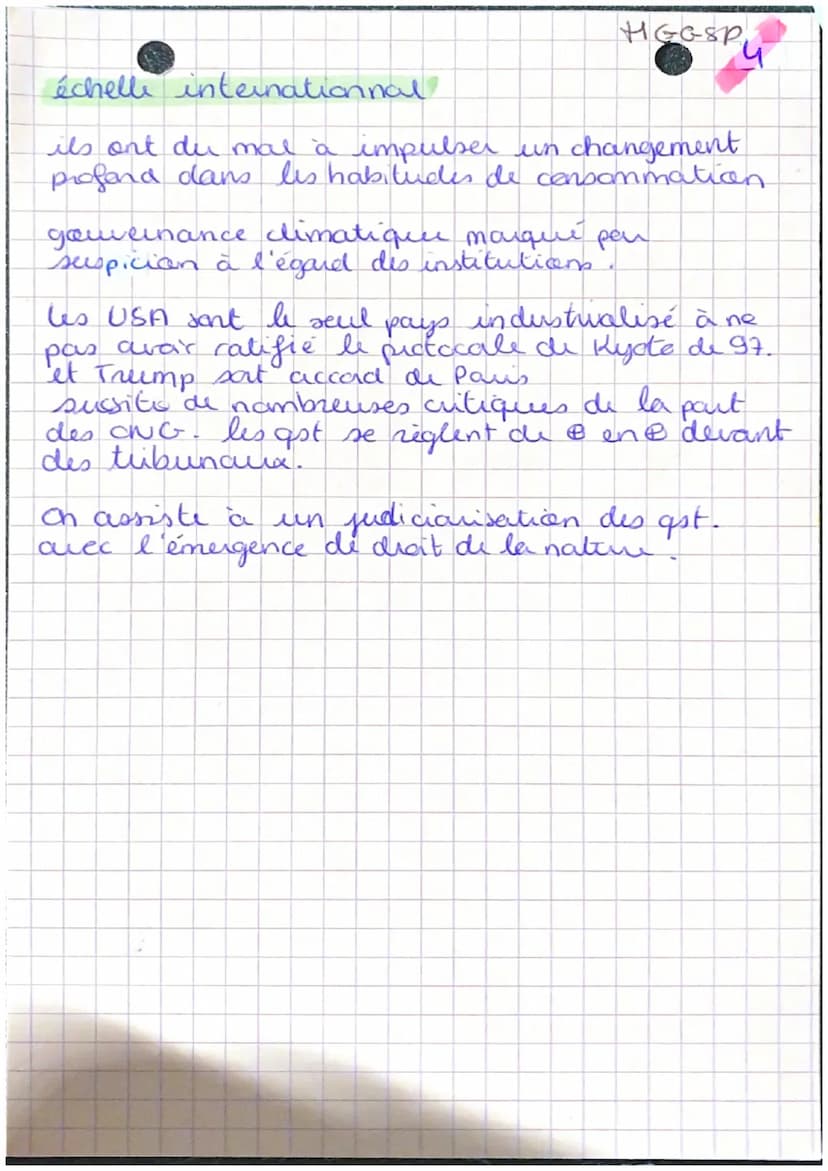 HGGSP
4
échelle internationnal
ils ont du mal à impulser un changement
profond dans les habitudes de consommation
gouvernance climatique marqué par
suspicion à l'égard des institutions.
les USA sont le seul pays industrialisé à ne
pas avoir ratifié le protocole de Kyoto de 97.
et Trump sort accord de Paris
suscite de nombreuses critiques de la part
des ONG. les qst se règlent de ⊕ en ⊕ devant
des tribunaux.
On assiste à un judiciarisation des qst.
avec l'émergence de droit de la nature.